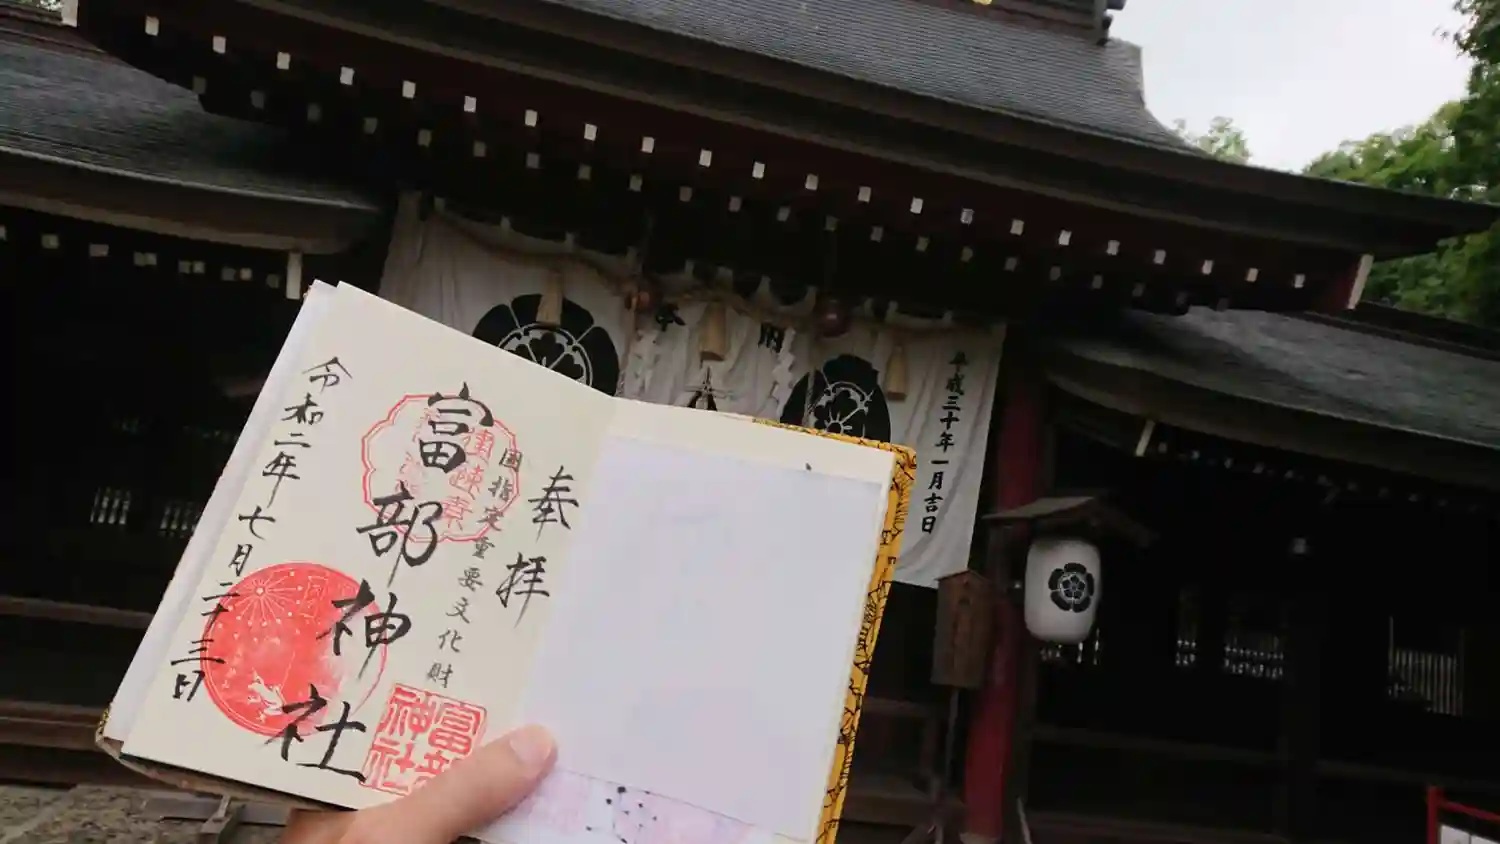 奉拝
國指定重要文化財
富部神社
令和二年七月二十三日
富部
神社
平成三十年一月吉日